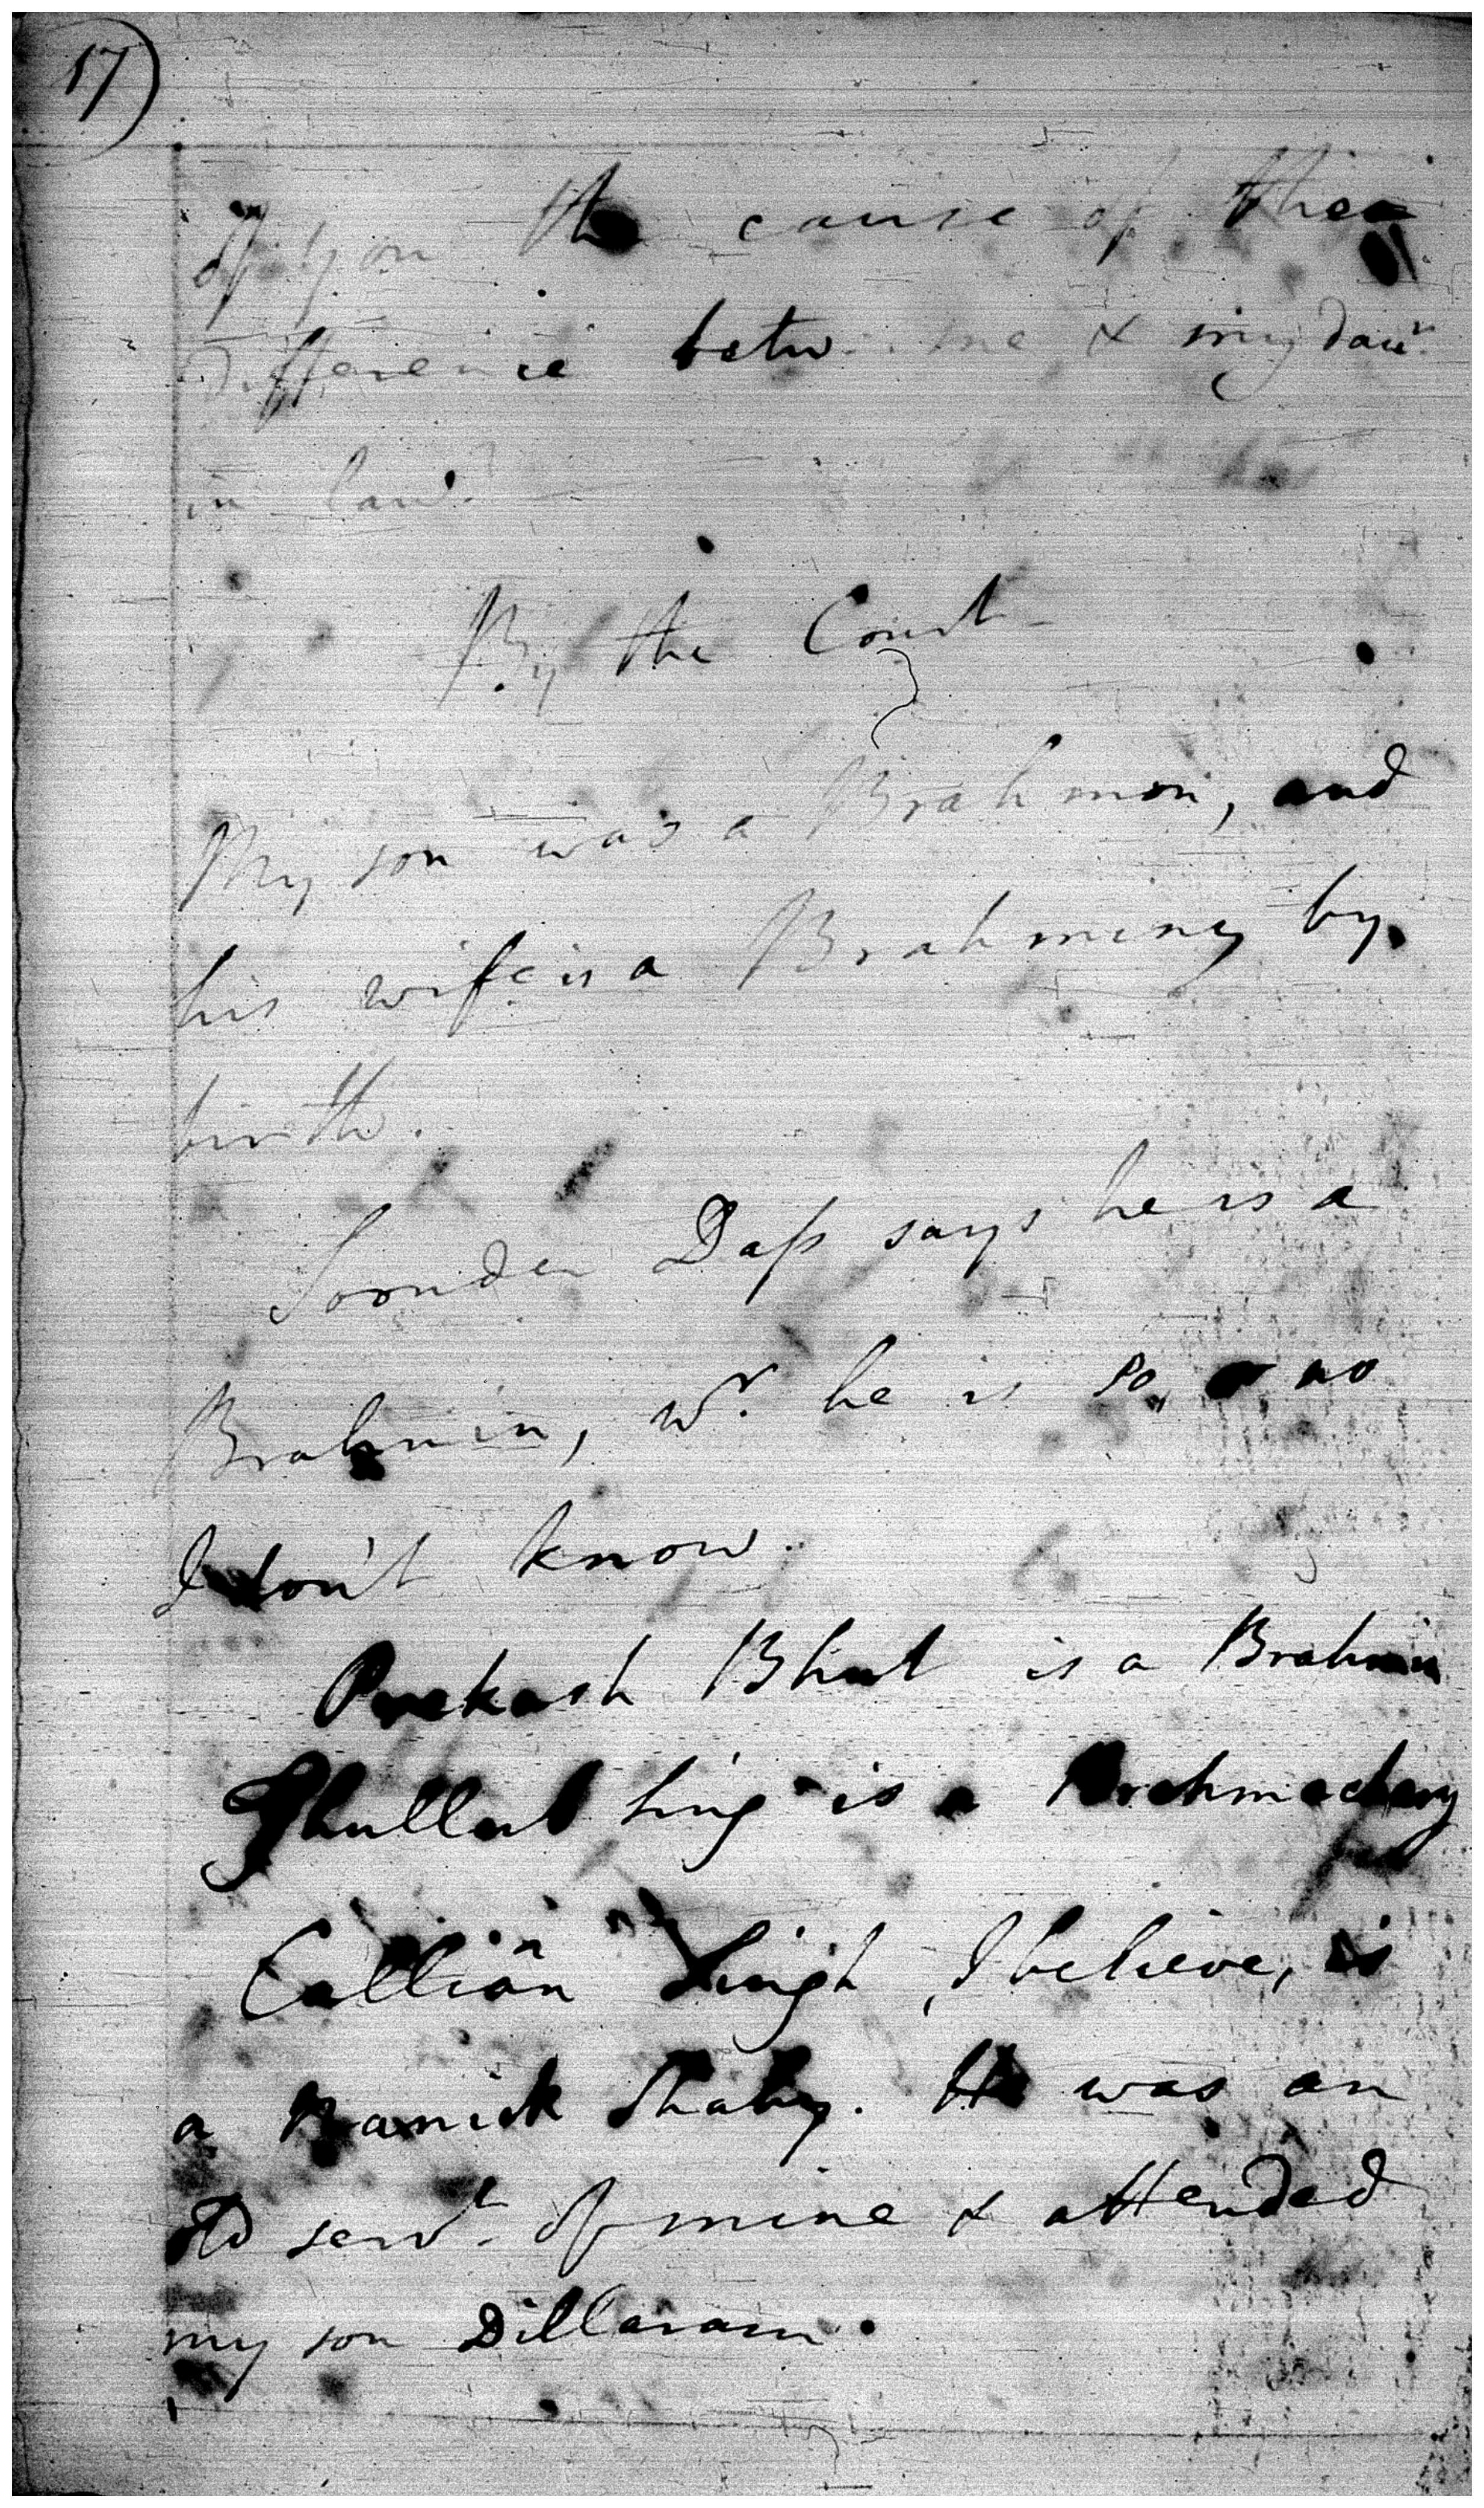 17)
of yon the cause of the
Difference betw. me & my Daur.
in law?
By the Court
My son was a Brahmon, and
his wife is a Brahminy by
birth.
Soonder Dass says he is a
Brahmin, wr. he is so, or no
I don't know.
Prekash Bhut is a Brahmin
Sing is a Brahmachary
Callian Singh, I believe, is
a Nanick Shahy. He was an
old servt. of mine & attended
my son Dillaram.